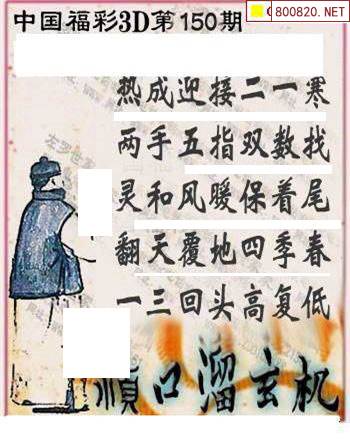 中国福彩3D第150期
800820.NET
热成迎接二一寒
两手五指双数找
灵和风暖保着尾
翻天覆地四季春
一三回头高复低
顺口溜玄机